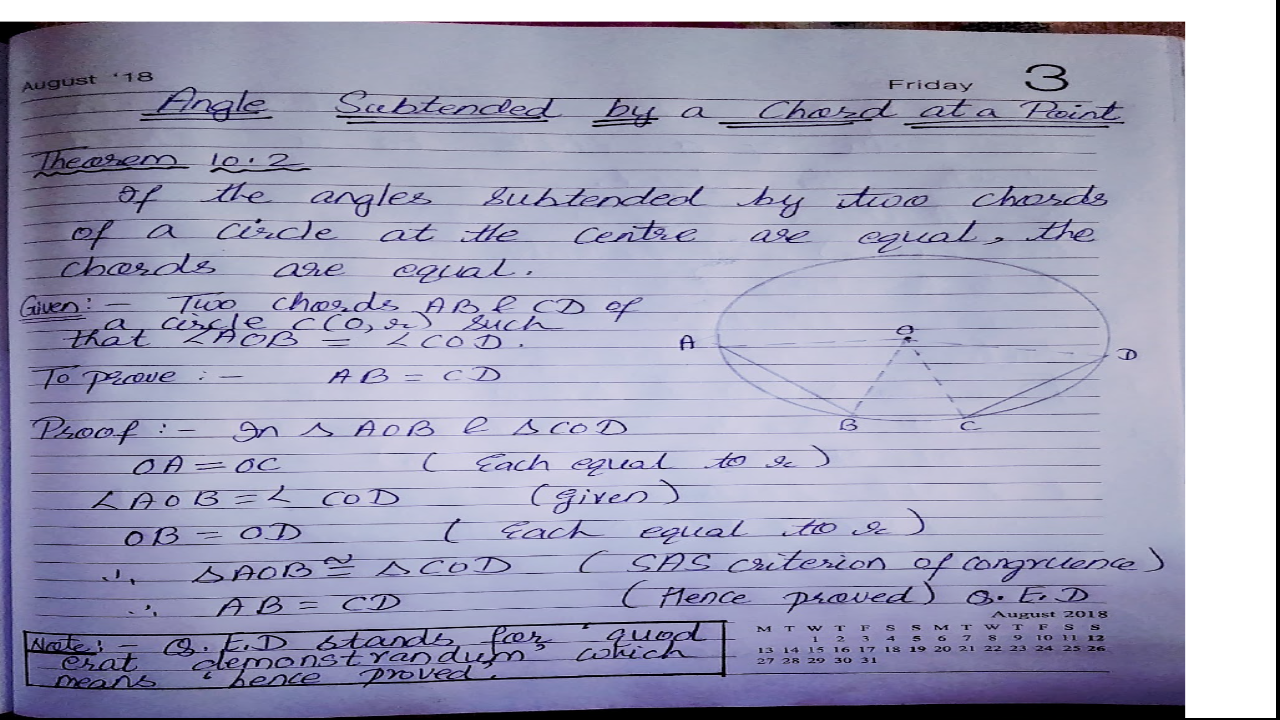 August '18 Friday 3
Angle Subtended by a Chord at a Point
Theorem 10.2
Of the angles subtended by two chords
of a circle at the centre are equal, the
chords are equal.
Given:- Two chords AB & CD of
a circle C(O, r) such
that ∠AOB = ∠COD.
To prove :- AB = CD
Proof :- In △AOB & △COD
OA = OC ( Each equal to r )
∠AOB = ∠COD (given)
OB = OD ( Each equal to r )
∴ △AOB ≅ △COD ( SAS criterion of congruence )
∴ AB = CD (Hence proved) Q.E.D
Note:- Q.E.D stands for 'quod
erat demonstrandum' which
means 'hence proved.
O
A
D
B C
August 2018
M T W T F S S M T W T F S S
1 2 3 4 5 6 7 8 9 10 11 12
13 14 15 16 17 18 19 20 21 22 23 24 25 26
27 28 29 30 31